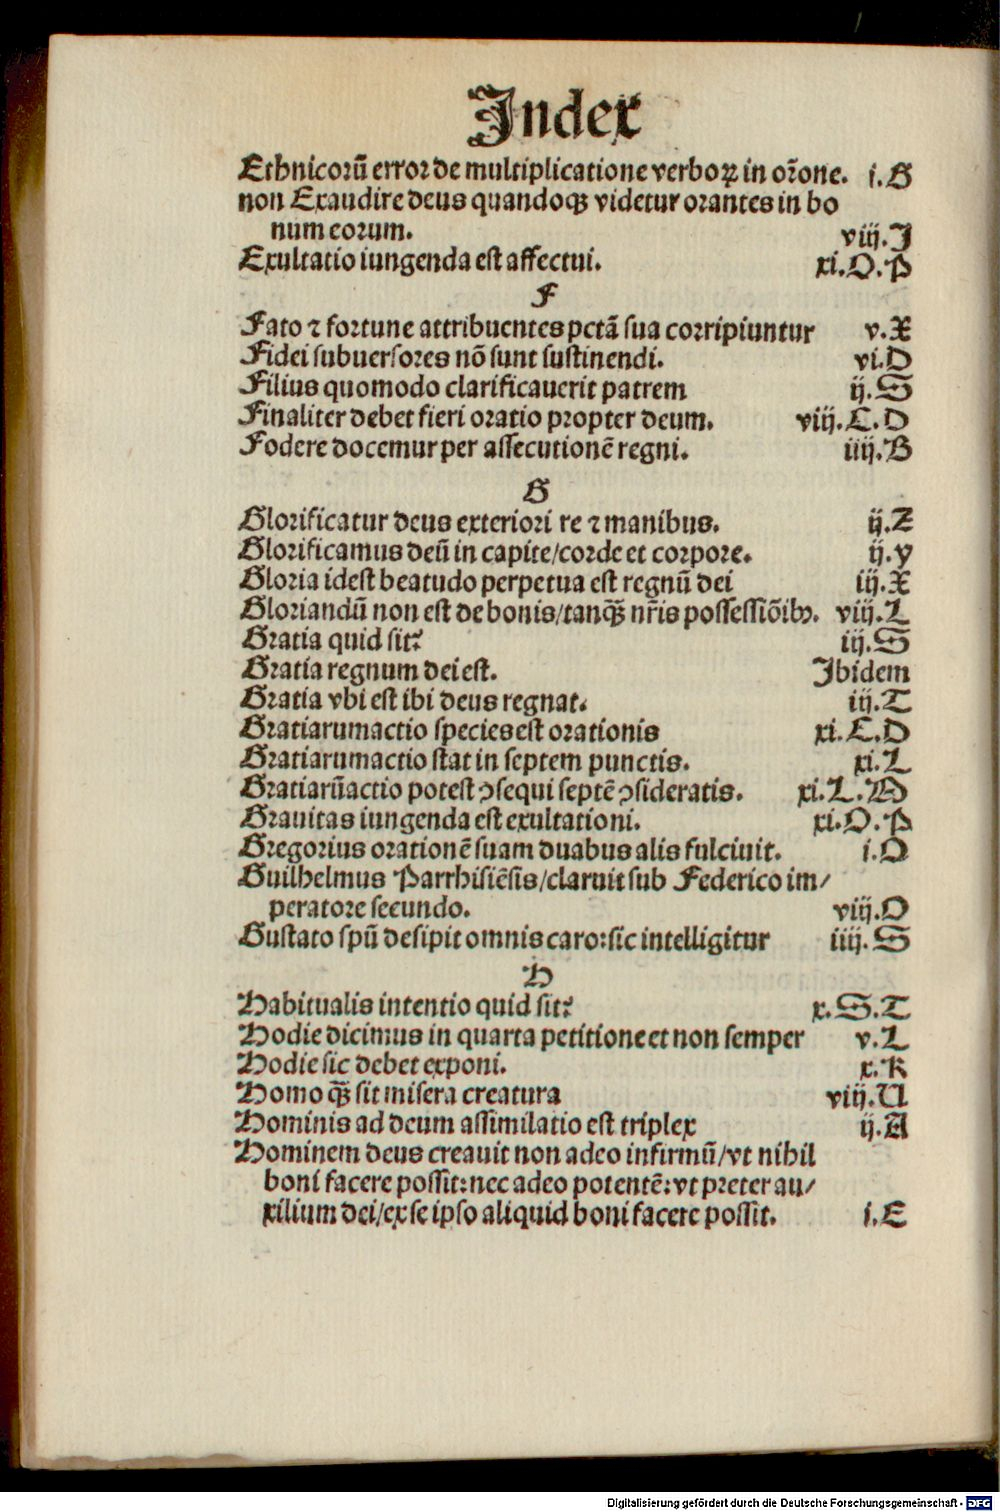 Index
Ethnicorū error de multiplicatione verboꝝ in or̄one. i.G
non Exaudire deus quandoqꝫ videtur orantes in bo
num eorum. viij.J
Exultatio iungenda est affectui. xi.O.P
F
Fato ⁊ fortune attribuentes pctā sua corripiuntur v.X
Fidei subuersores nō sunt sustinendi. vi.D
Filius quomodo clarificauerit patrem ij.S
Finaliter debet fieri oratio propter deum. viij.C.D
Fodere docemur per assecutionē regni. iiij.B
G
Glorificatur deus exteriori re ⁊ manibus. ij.Z
Glorificamus deū in capite/corde et corpore. ij.y
Gloria idest beatudo perpetua est regnū dei iij.X
Gloriandū non est de bonis/tanqꝫ̄ nr̄is possessiōibꝰ. viij.L
Gratia quid sit? iij.S
Gratia regnum dei est. Jbidem
Gratia vbi est ibi deus regnat. iij.T
Gratiarumactio species est orationis xi.C.D
Gratiarumactio stat in septem punctis. xi.L
Gratiarūactio potest ↄsequi septē ↄsideratis. xi.L.M
Grauitas iungenda est exultationi. xi.O.P
Gregorius orationē suam duabus alis fulciuit. i.O
Guilhelmus Parrhisiēsis/claruit sub Federico im/
peratore secundo. viij.O
Gustato spū desipit omnis caro:sic intelligitur iiij.S
H
Habitualis intentio quid sit? x.S.T
Hodie dicimus in quarta petitione et non semper v.L
Hodie sic debet exponi. x.K
Homo qꝫ̄ sit misera creatura viij.U
Hominis ad deum assimilatio est triplex ij.A
Hominem deus creauit non adeo infirmū/vt nihil
boni facere possit:nec adeo potentē:vt preter au/
xilium dei/ex se ipso aliquid boni facere possit. i.E
Digitalisierung gefördert durch die Deutsche Forschungsgemeinschaft - DFG